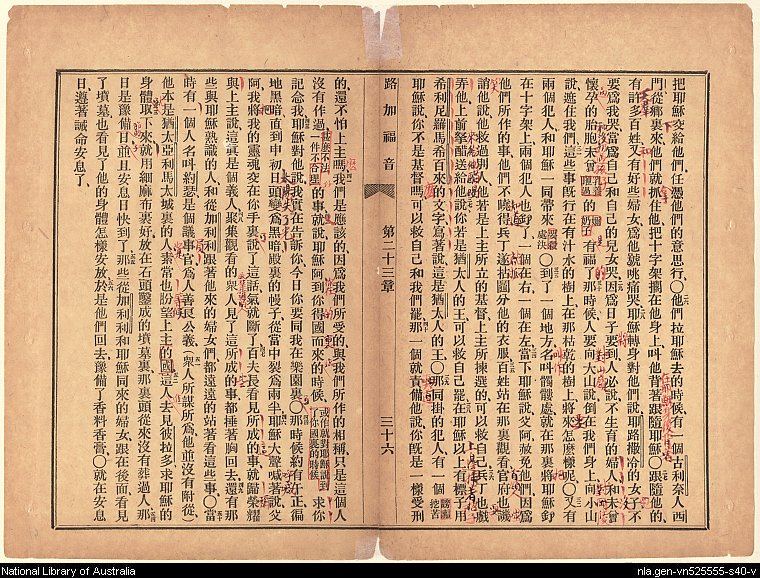 把耶穌交給他們任憑他們的意思行○他們拉耶穌去的時候有一個古利奈人西
門從鄉裏來他們就抓住他把十字架擱在他身上叫他背著跟隨耶穌○跟隨他的
有許多百姓又有好些婦人爲他號咷痛哭耶穌轉身對他們說耶路撒冷的女子不
要爲我哭當爲自己和自己的兒女哭因爲日子要到人必說不生育的婦人和未曾
懷孕的胎胞未曾的奶子有福了那時候人要向大山說倒在我們身上向小山
說遮住我們這些事旣行在有汁水的樹上在那枯乾的樹上將來怎麼樣呢○又有
兩個犯人和耶穌一同帶來處決○到了一個地方名叫髑髏處就在那裏將耶穌釘
在十字架上兩個犯人也釘了一個在右一個在左當下耶穌說父阿赦免他們因爲
他們所作的事他們不曉得兵丁遂拈鬮分他的衣服百姓站在那裏觀看官府也譏
誚他說他救過別人他若是上主所立的基督上主所揀選的可以救自己兵丁也戲
弄他上前拏醋送給他說你若是猶太人的王可以救自己罷在耶穌以上有標子用
希利尼羅馬希百來的文字寫著說這是猶太人的王○那同掛的犯人有一個
耶穌說你不是基督嗎可以救自己和我們罷那一個就責備他說你旣是一樣受刑
路加福音 第二十三章 三十六
的、還不怕上主嗎、我們是應該的、因爲我們所受的與我們所作的相稱只是這個人
沒有作過一件不合理的事就說耶穌阿到你得國而來的時候、求你
記念我耶穌對他說我實在告訴你今日你要同我在樂園裏○那時候約有午正徧
地黑暗直到申初日頭變爲黑暗殿裏的幔子從當中裂爲兩半耶穌大聲喊著說父
阿我將我的靈魂交在你手裏說了這話氣就斷了百夫長看見所成的事就歸榮耀
與上主說這眞是個義人聚集觀看的衆人見了這所成的事都捶著胸回去還有那
些與耶穌熟識的人和從加利利跟著他來的婦女們都遠遠的站著看這些事○當
時有一個人名叫約瑟是個議事官爲人善良公義、(衆人所謀所爲他並沒有附從)
他本是猶太亞利馬太城裏的人素常也盼望上主的國這人去見彼拉多求耶穌的
身體取下來就用細麻布裏好放在石頭鑿成的墳墓裏那裏頭從來沒有葬過人那
日是豫備日並且安息日快到了那些從加利利和耶穌同來的婦女跟在後面看見
了墳墓也看見了他的身體怎樣安放於是他們回去豫備了香料香膏○就在安息
日遵著誡命安息了
National Library of Australia
nla.gen-vn525555-s40-v